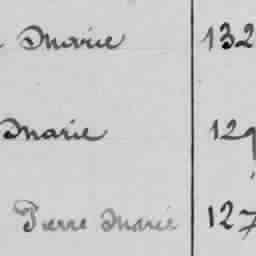 Marie 132
Marie 129
Pierre Marie 127